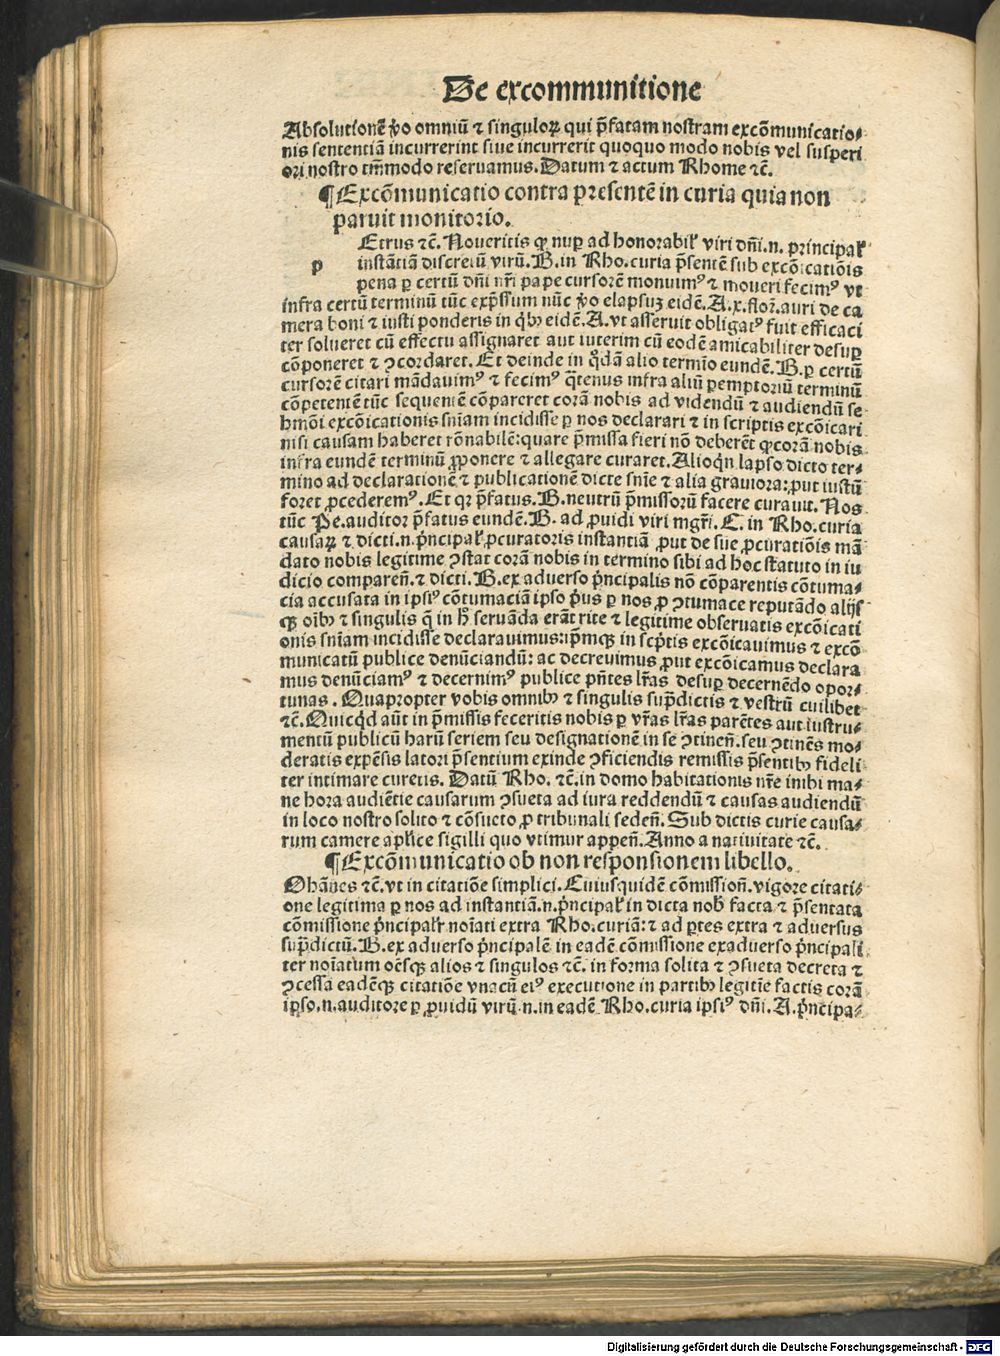 De excommunitione
Absolutionẽ ꝟo omniũ ⁊ singuloꝝ qui p̃fatam nostram excõmunicatio⸗
nis sententiã incurrerint siue incurrerit quoquo modo nobis vel superi
ori nostro tm̃modo reseruamus. Datum ⁊ actum Rhome ⁊c̃.
¶Excõmunicatio contra presentẽ in curia quia non
paruit monitorio.
Etrus ⁊c̃. Noueritis ꝙ nuꝑ ad honorabil̕ viri dñi.n. principal̕
p instãtiã discretũ virũ. B. in Rho. curia p̃sentẽ sub excõicatiõis
pena ꝑ certũ dñi nr̃i pape cursorẽ monuimꝰ ⁊ moueri fecimꝰ vt
infra certũ terminũ tũc exp̃ssum nũc ꝟo elapsuꝫ eidẽ. A.x. flor̃. auri de ca
mera boni ⁊ iusti ponderis in q̇bꝰ eidẽ. A. vt asseruit obligatꝰ fuit efficaci
ter solueret cũ effectu assignaret aut interim cũ eodẽ amicabiliter desuꝑ
cõponeret ⁊ ꝯcordaret. Et deinde in q̇dã alio termĩo eundẽ. B. ꝑ certũ
cursorẽ citari mãdauimꝰ ⁊ fecimꝰ q̃tenus infra aliũ ꝑemptoriũ terminũ
cõpetentẽ tũc sequentẽ cõpareret corã nobis ad videndũ ⁊ audiendũ se
hmõi excõicationis sniam incidisse ꝑ nos declarari ⁊ in scriptis excõicari
nisi causam haberet rõnabilẽ: quare p̃missa fieri nõ deberẽt ꝙ corã nobis
infra eundẽ terminũ ꝓponere ⁊ allegare curaret. Alioq̇n lapso dicto ter⸗
mino ad declarationẽ ⁊ publicationẽ dicte snĩe ⁊ alia grauiora: ꝓut iustũ
foret ꝓcederemꝰ. Et qꝛ p̃fatus. B. neutrũ p̃missorũ facere curauit. Nos
tũc Pe. auditor p̃fatus eundẽ. B. ad ꝓuidi viri mgr̃i. C. in Rho. curia
causaꝝ ⁊ dicti.n. p̃ncipal̕ ꝓcuratoris instantiã ꝓut de sue ꝓcuratiõis mã
dato nobis legitime ꝯstat corã nobis in termino sibi ad hoc statuto in iu
dicio comparen̄. ⁊ dicti. B. ex aduerso p̃ncipalis nõ cõparentis cõtuma⸗
cia accusata in ipsiꝰ cõtumaciã ipso p̃us ꝑ nos ꝓ ꝯtumace reputãdo alijs
qꝫ oĩbꝰ ⁊ singulis q̃ in hꝰ seruãda erãt rite ⁊ legitime obseruatis excõicati
onis sniam incidisse declarauimus: ip̃mqꝫ in scp̃tis excõicauimus ⁊ excõ
municatũ publice denũciandũ: ac decreuimus ꝓut excõicamus declara
mus denũciamꝰ ⁊ decernimꝰ publice pñtes lr̃as desuꝑ decernẽdo opor⸗
tunas. Quapropter vobis omnibꝰ ⁊ singulis sup̃dictis ⁊ vestrũ cuilibet
⁊c̃. Quicq̇d aũt in p̃missis feceritis nobis ꝑ vr̃as lr̃as parẽtes aut iustru⸗
mentũ publicũ harũ seriem seu designationẽ in se ꝯtinen̄. seu ꝯtinẽs mo⸗
deratis expẽsis latori p̃sentium exinde ꝯficiendis remissis p̃sentibꝰ fideli
ter intimare curetis. Datũ Rho. ⁊c̃. in domo habitationis nr̃e inibi ma⸗
ne hora audiẽtie causarum ꝯsueta ad iura reddendũ ⁊ causas audiendũ
in loco nostro solito ⁊ cõsueto ꝓ tribunali seden̄. Sub dictis curie causa⸗
rum camere apl̕ice sigilli quo vtimur appen̄. Anno a natiuitate ⁊c̃.
¶Excõmunicatio ob non responsionem libello.
Ohãnes ⁊c̃. vt in citatiõe simplici. Cuiusquidẽ cõmission̄. vigore citati⸗
one legitima ꝑ nos ad instantiã.n. p̃ncipal̕ in dicta nob̕ facta ⁊ p̃sentata
cõmissione p̃ncipalr̕ noĩati extra Rho. curiã: ⁊ ad ꝑtes extra ⁊ aduersus
sup̃dictũ. B. ex aduerso p̃ncipalẽ in eadẽ cõmissione exaduerso p̃ncipali
ter noĩatum oẽsqꝫ alios ⁊ singulos ⁊c̃. in forma solita ⁊ ꝯsueta decreta ⁊
ꝯcessa eadẽqꝫ citatiõe vnacũ eiꝰ executione in partibꝰ legitĩe factis corã
ipso.n. auditore ꝑ ꝓuidũ virũ.n. in eadẽ Rho. curia ipsiꝰ dñi. A. p̃ncipa⸗
Digitalisierung gefördert durch die Deutsche Forschungsgemeinschaft - DFG